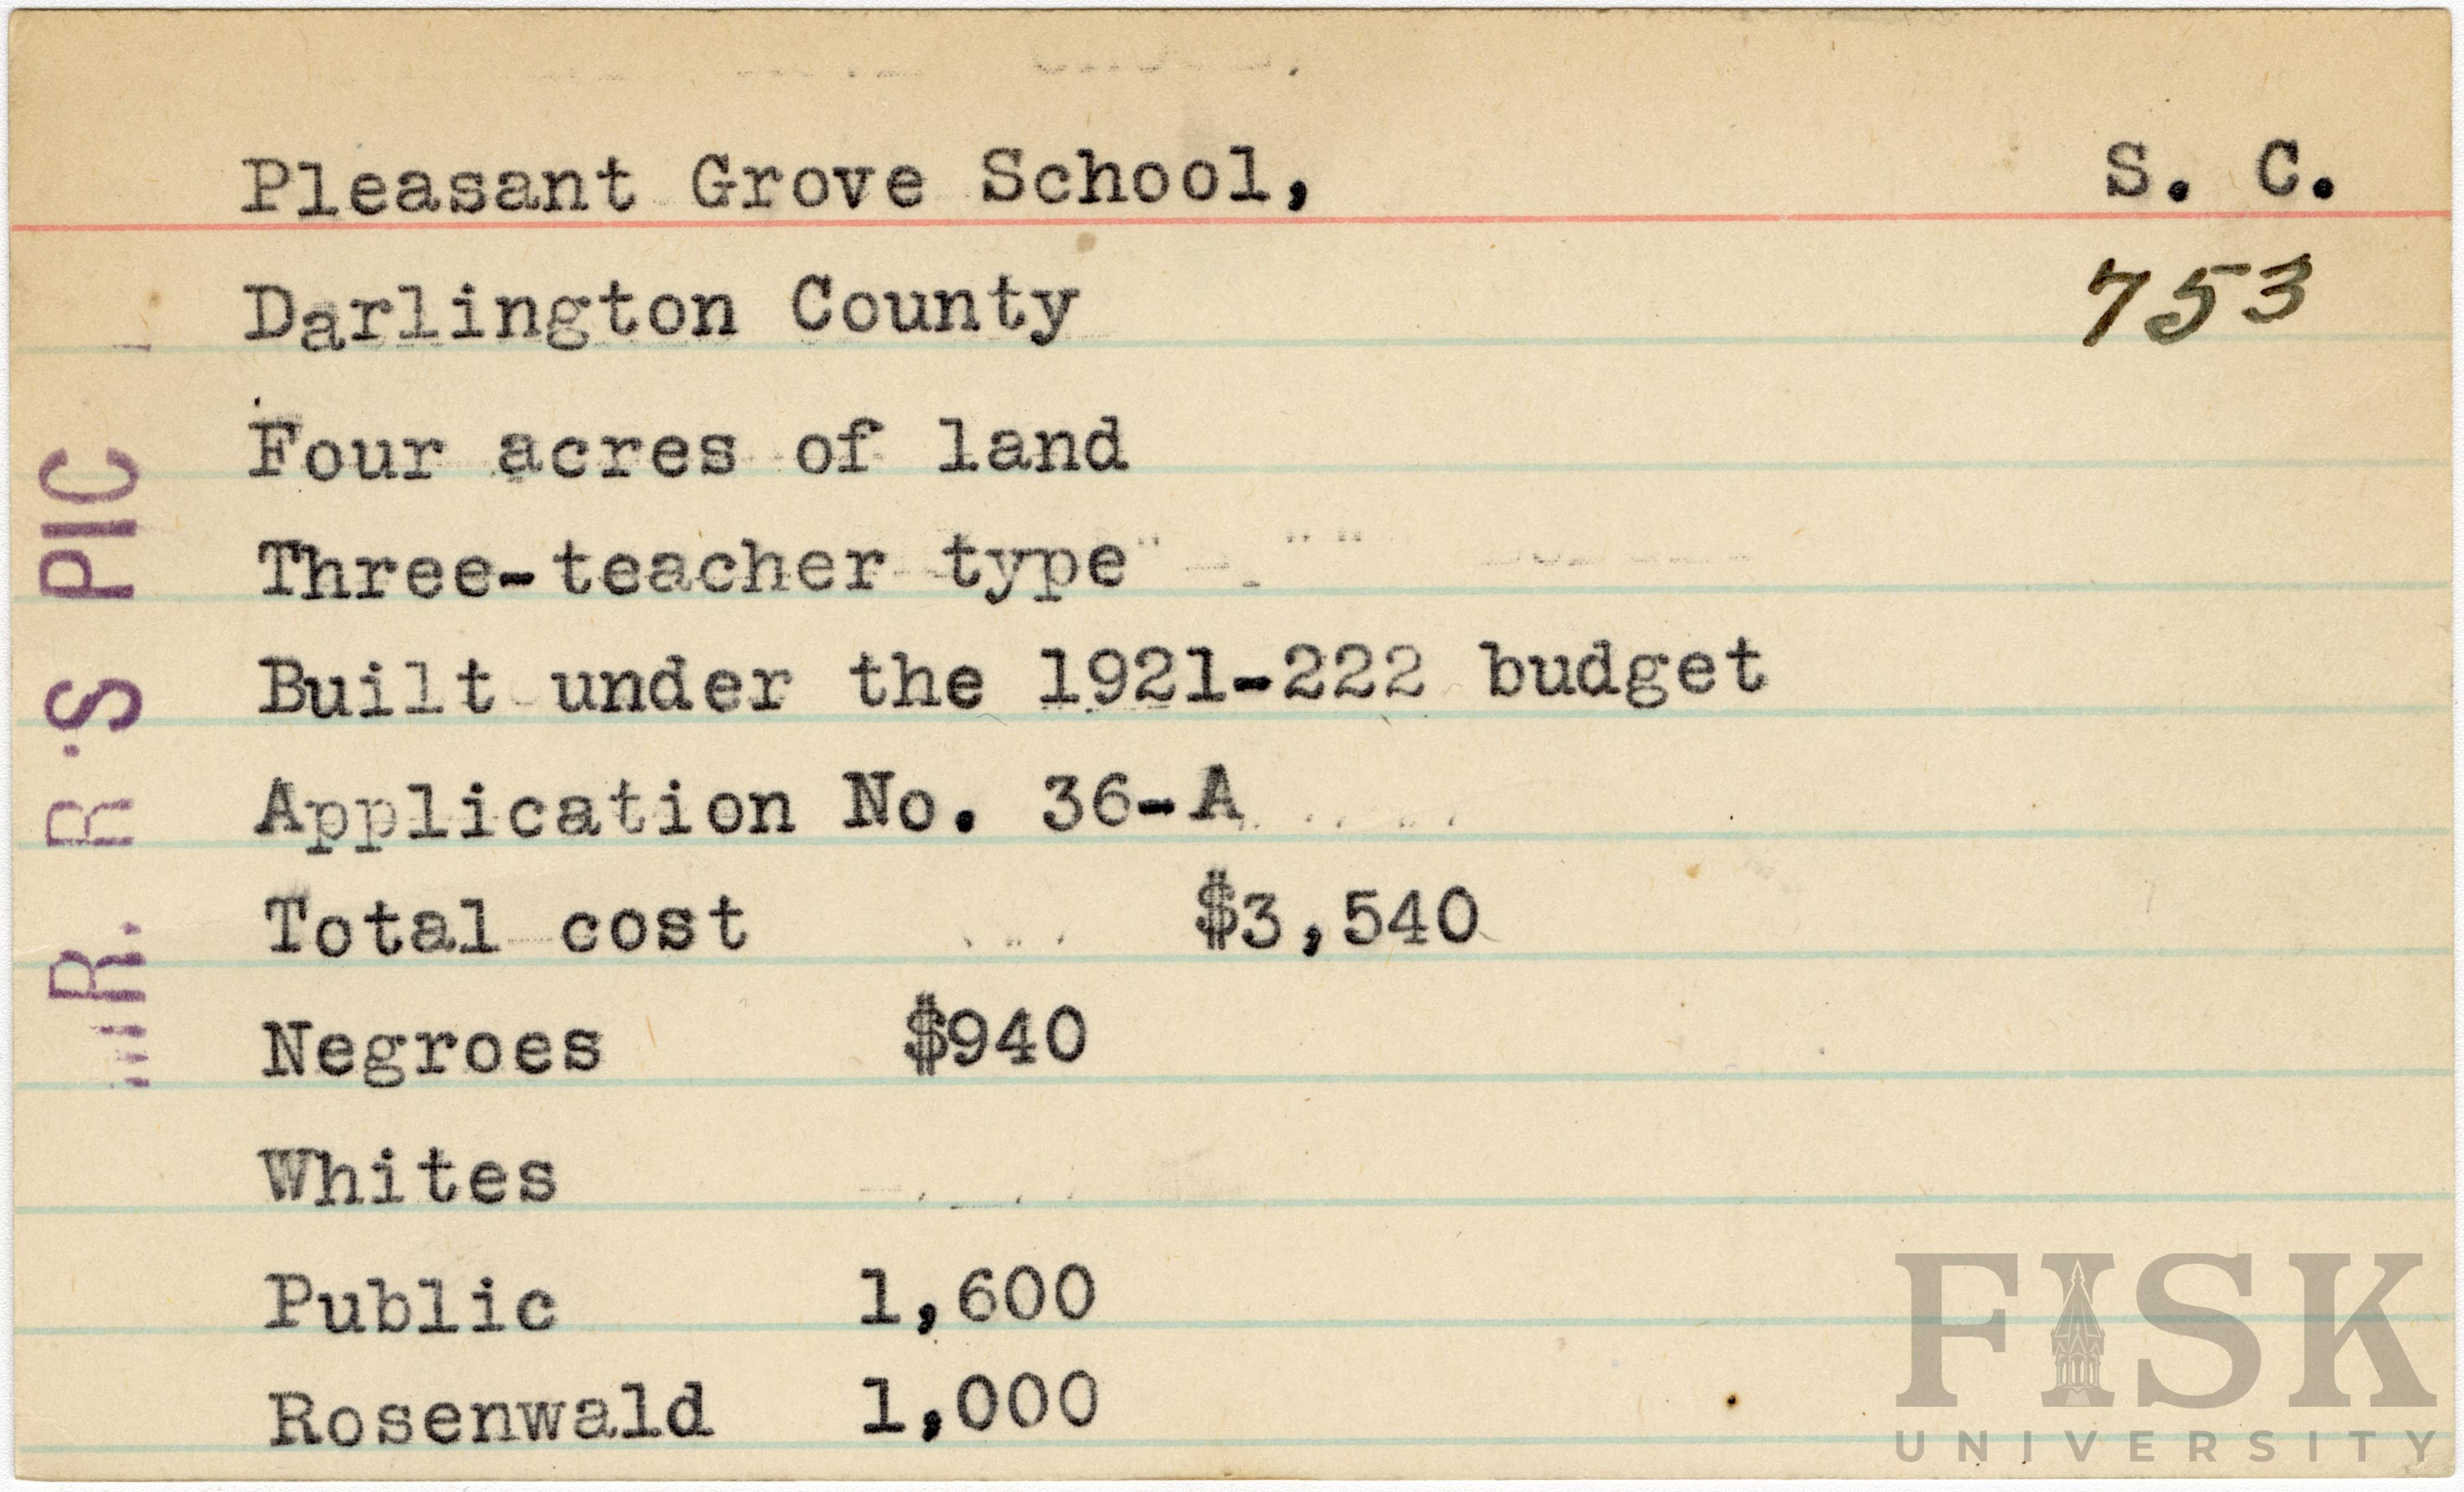 Pleasant Grove School, S. C.
Darlington County 753
Four acres of land
Three-teacher type
Built under the 1921-222 budget
Application No. 36-A
Total cost $3,540
Negroes $940
Whites
Public 1,600
Rosenwald 1,000
R. R. S PIC
FISK
UNIVERSITY